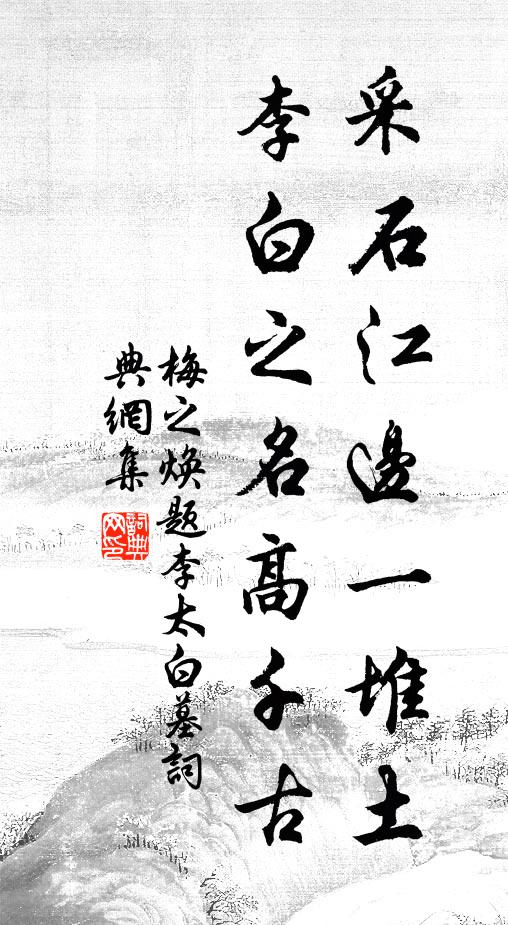 采石江邊一堆土
李白之名高千古
梅之煥題李太白墓詞
典網集
詞典網印